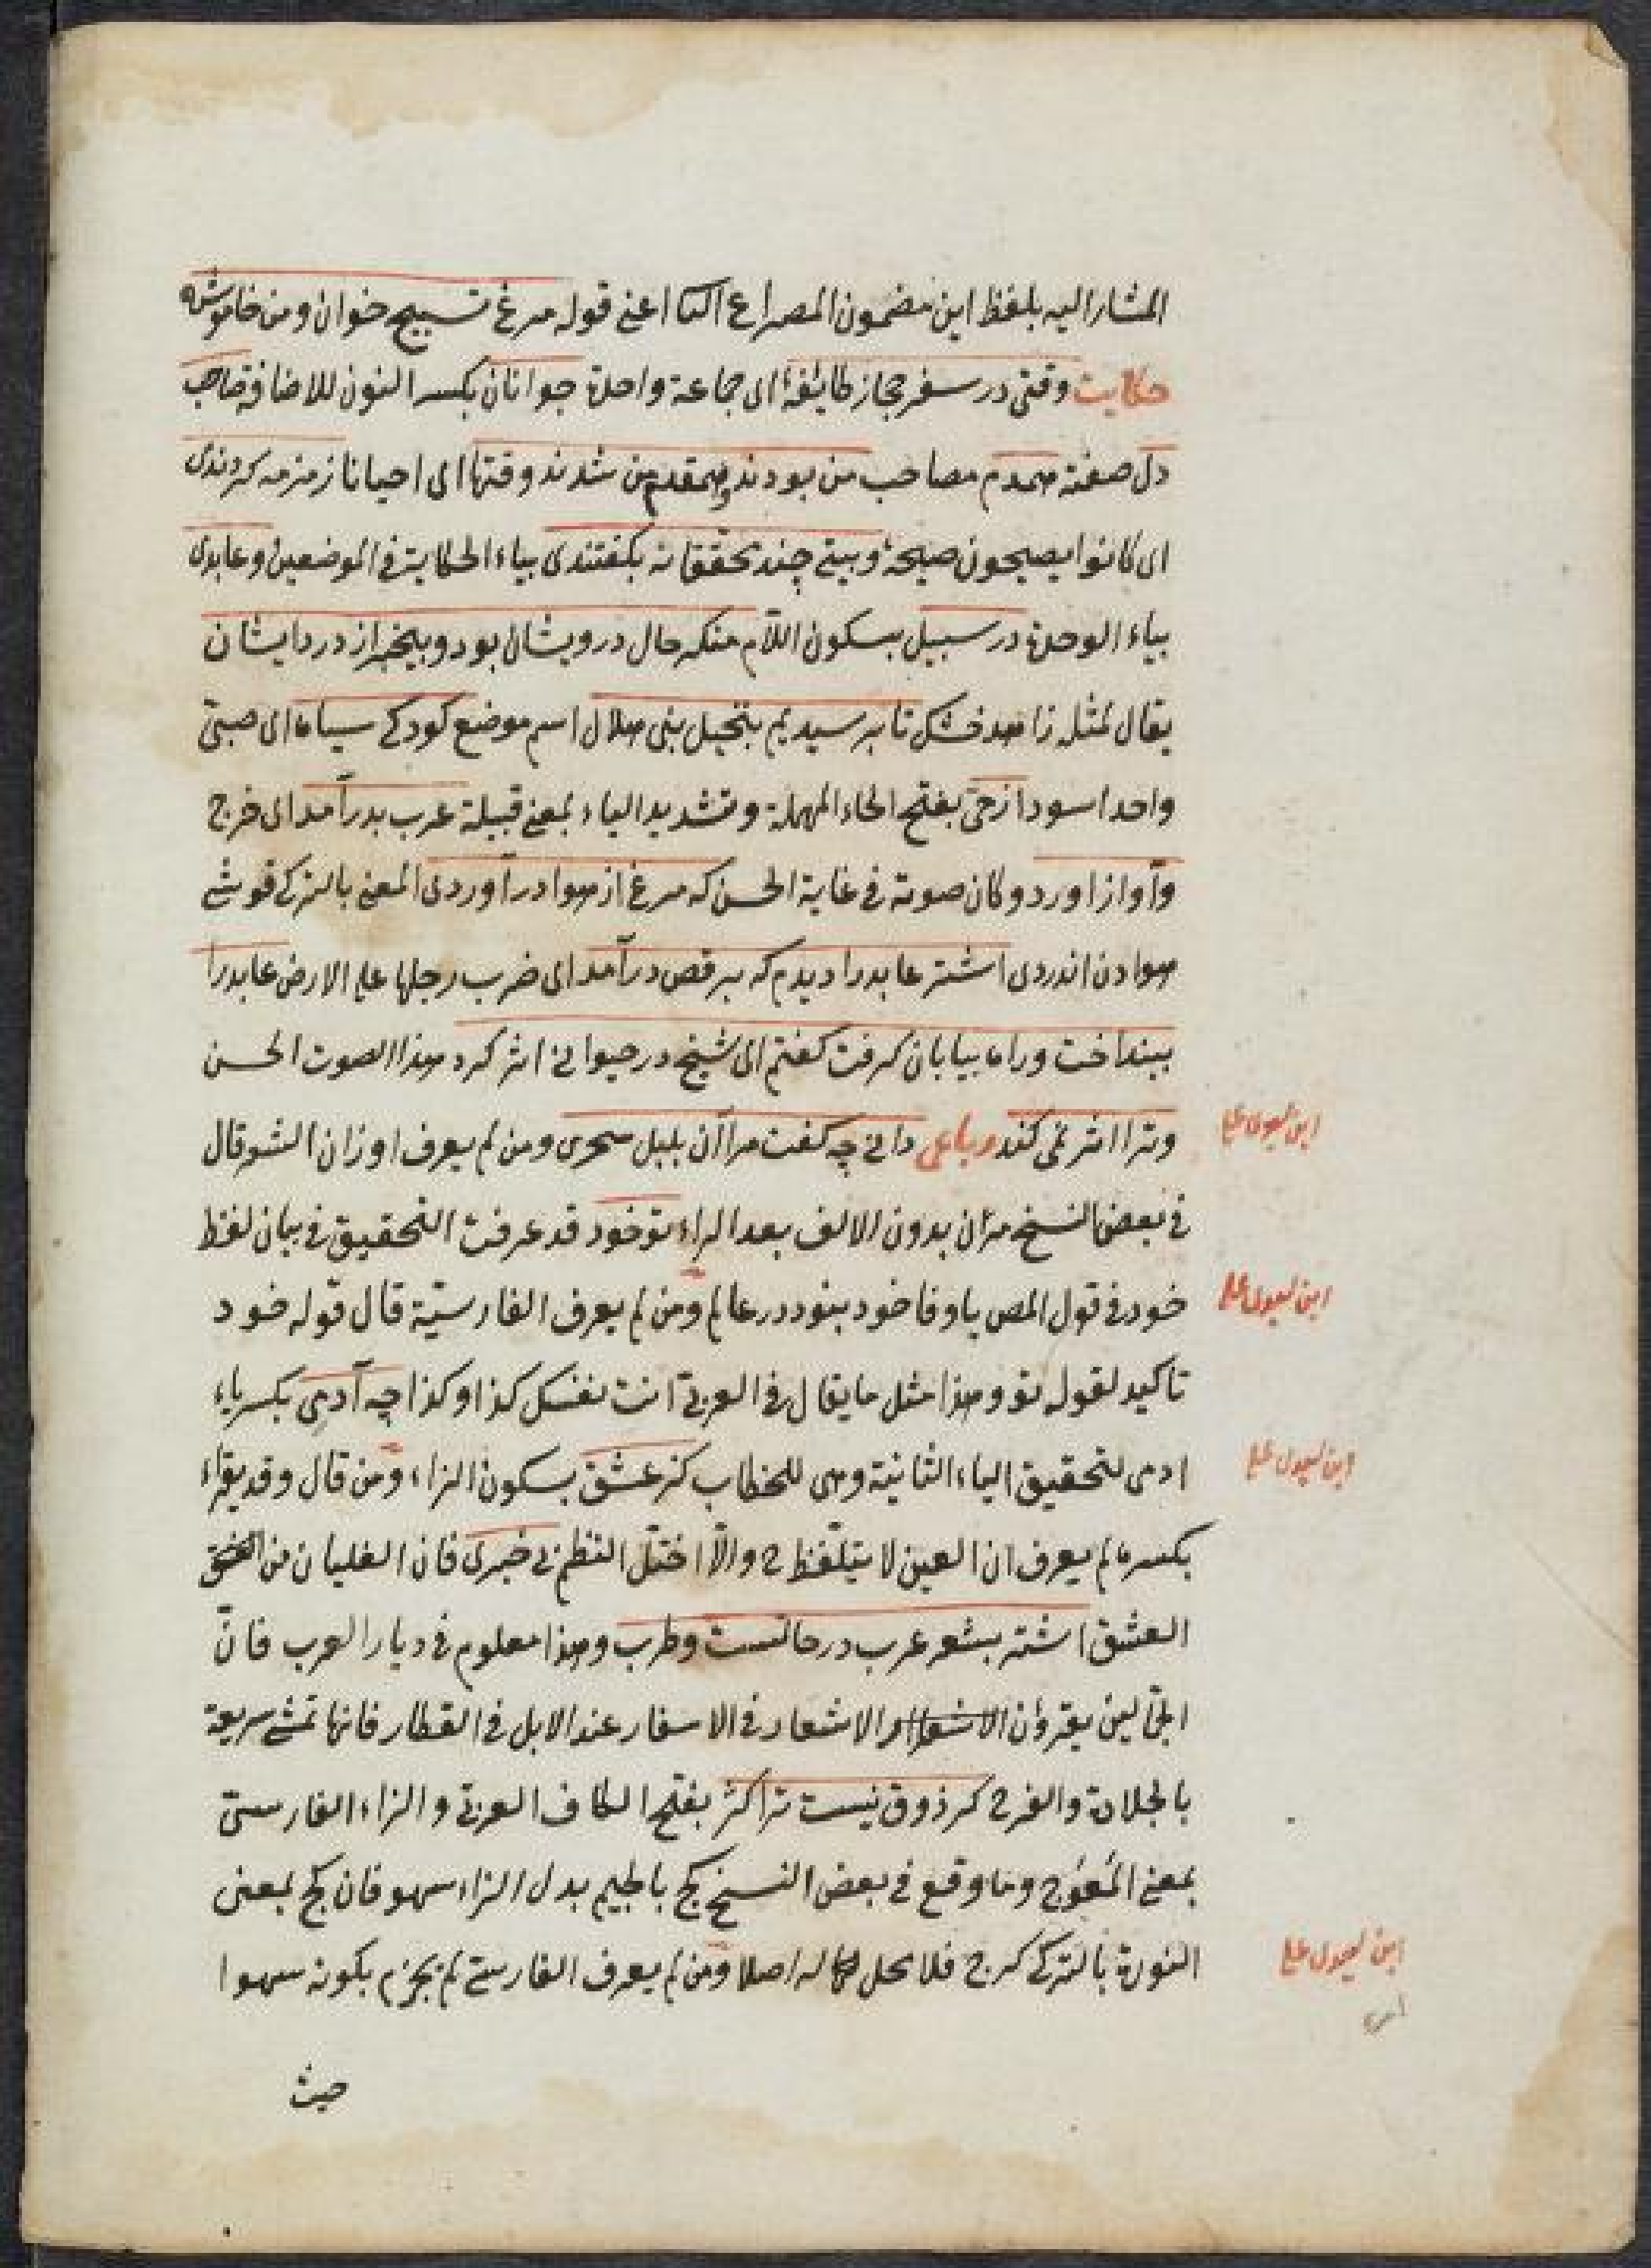 المشار اليه بلفظ اين مضمون المصراع الثا اعنى قوله مرغ تسبيح خوان ومن خاموش
حكايت وقتى در سفر حجاز طايفۀ اى جماعة واحدة جوانان بكسر النون للاضافة صاحب
دل صفته همدم مصاحب من بودند وهمقدم من شدند وقتها اى احيانا زمزمه كردندى
اى كانوا يصيحون صيحة وبيتى چند محققانه بكفتندى بياء الحكاية فى الموضعين وعابدى
بياء الوحدة در سبيل بسكون اللام منكر حال درويشان بود وبيخبر از درد ايشان
يقال لمثله زاهد خشك تا برسيديم بنخيل بنى هلال اسم موضع كودكى سياه اى صبىّ
واحد اسود از حىّ بفتح الحاء المهملة وتشديد الياء بمعنى قبيلة عرب بدر آمد اى خرج
وآواز اورد وكان صوته فى غاية الحسن كه مرغ از هوا در آوردى المعنى بالتركى قوشى
هوادن اندردى اشتر عابد را ديدم كه برقص در آمد اى ضرب رجلها على الارض عابد را
بينداخت وراه بيابان كرفت كفتم اى شيخ در حيوانى اثر كرد هذا الصوت الحسن
وترا اثر نمى كند رباعى دانى چه كفت مرا آن بلبل سحرى ومن لم يعرف اوزان الشعر قال
فى بعض النسخ مرآن بدون الالف بعد الراء تو خود قد عرفت التحقيق فى بيان لفظ
خود فى قول المص ياوفا خود بنود در عالم ومن لم يعرف الفارسيّة قال قوله خود
تاكيد لقوله تو وهذا مثل ما يقال فى العربىّ انت نفسك كذا وكذا چه آدمى بكسر ياء
ادمى لتحقيق الياء الثانية وهى للخطاب كز عشق بسكون الزاء ومن قال وقد يقراء
بكسرها لم يعرف ان العين لا يتلفظ ح والّا اختلّ النظم بى خبرى فان الغليان من
العشق اشتر بشعر عرب در حالتست وطرب وهذا معلوم فى ديار العرب فانّ
الجمّالين يقرؤن الاشعار فى الاسفار عند الابل فى القطار فانها تمشى سريعة
بالجلادة والفرح كر ذوق نيست ترا كژ بفتح الكاف العربىّ والزاء الفارسىّ
بمعنى المعوّج وما وقع فى بعض النسخ كج بالجيم بدل الزاء سهو فان كج بمعنى
النورة بالتركى كرج فلا محل له اصلا ومن لم يعرف الفارسى لم يجزم بكونه سهوا
حيث